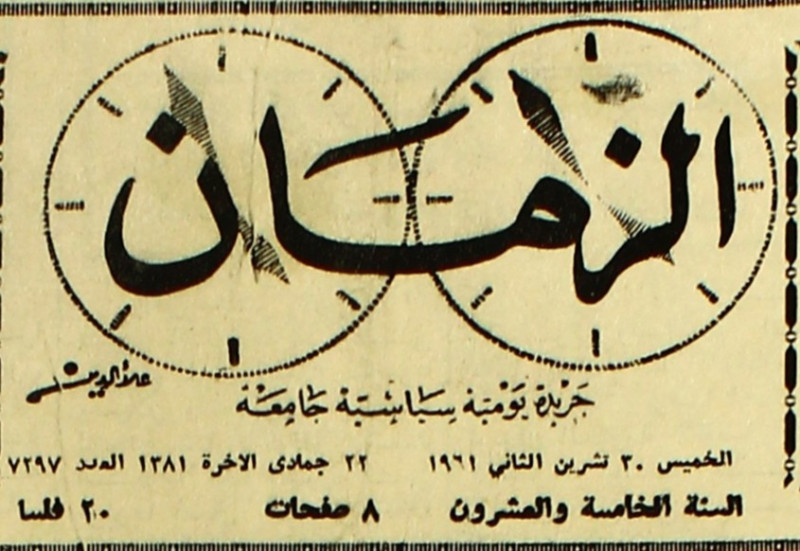 الزمان
علاء الدين
جريدة يومية سياسية جامعة
الخميس ٣٠ تشرين الثاني ١٩٦١ ٢٢ جمادى الاخرة ١٣٨١ العدد ٧٢٩٧
السنة الخامسة والعشرون ٨ صفحات ٢٠ فلسا